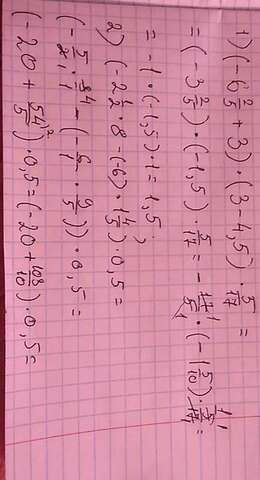 1) (-6 2/5 + 3) · (3 - 4,5) · 5/17 =
= (-3 2/5) · (-1,5) · 5/17 = - 17/5 · (-1 5/10) · 5/17 =
= -1 · (-1,5) · 1 = 1,5;
2) (-2 1/2 · 8 - (-6) · 1 4/5) · 0,5 =
(- 5/2 · 8/1 - (- 6/1 · 9/5)) · 0,5 =
(-20 + 54/5) · 0,5 = (-20 + 108/10) · 0,5 =